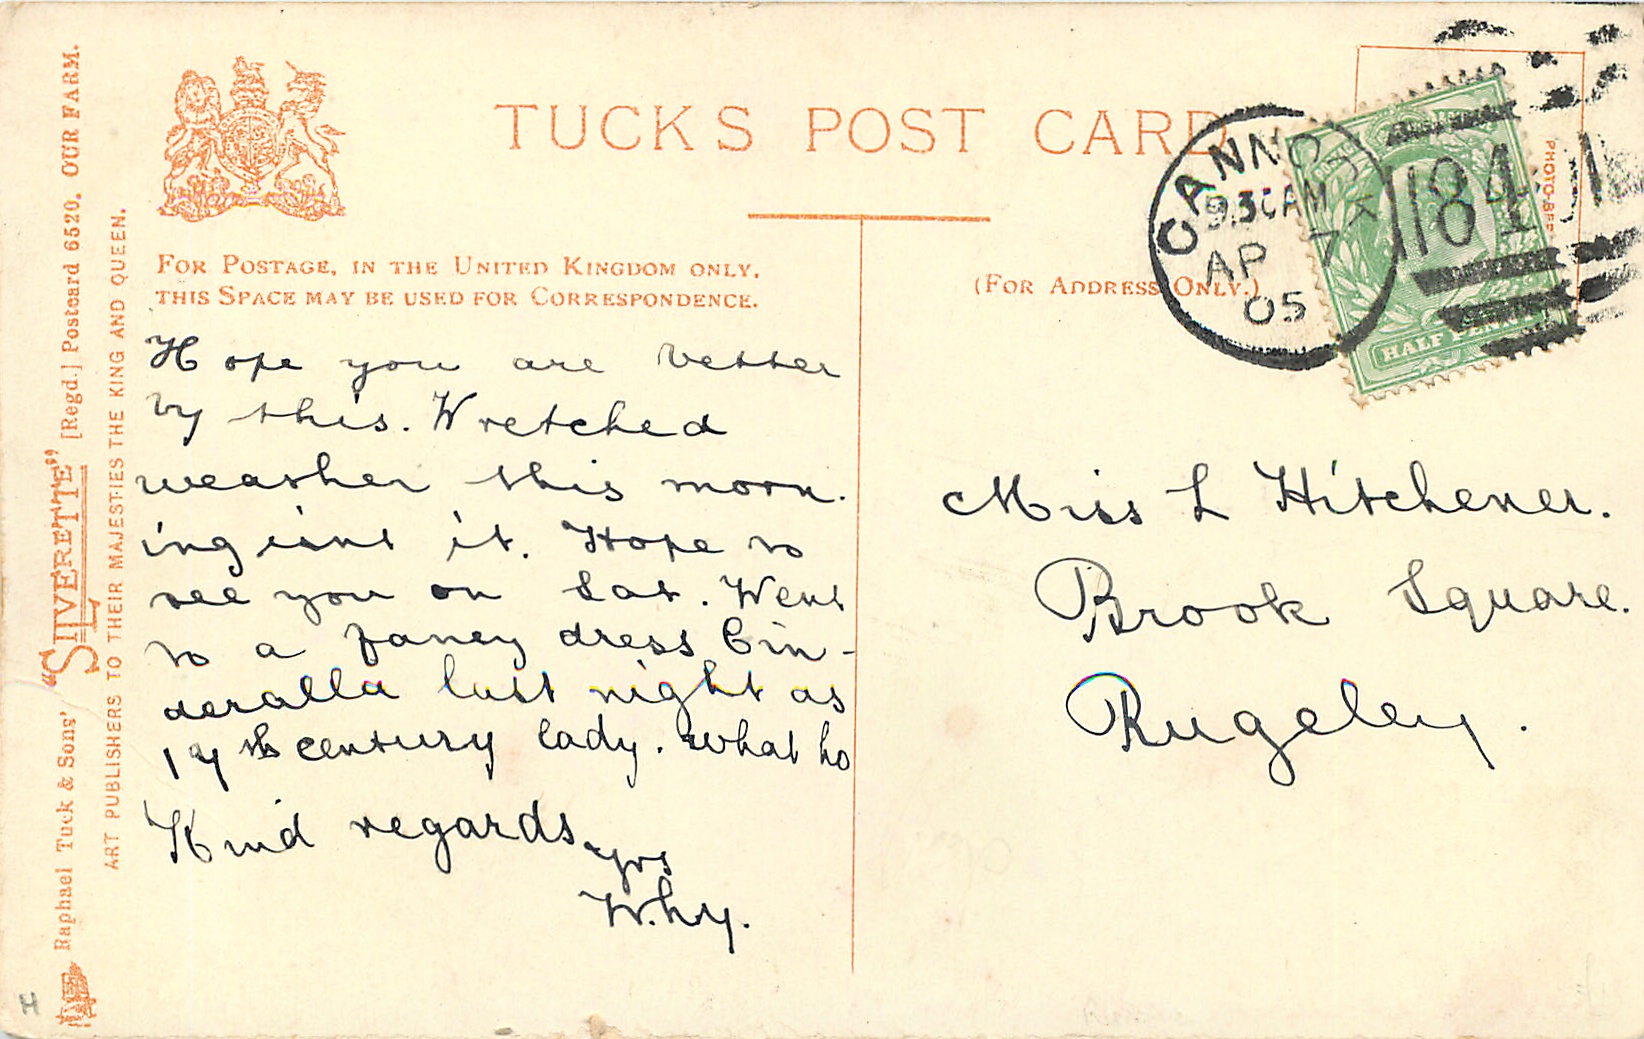 TUCK'S POST CARD
FOR POSTAGE, IN THE UNITED KINGDOM ONLY,
THIS SPACE MAY BE USED FOR CORRESPONDENCE.
(FOR ADDRESS ONLY.)
CANNOCK
9.30AM
AP 7
05
HALF PENNY
Hope you are better
by this. Wretched
weather this morn.
ing isnt it. Hope to
see you on Sat. Went
to a fancy dress Cin-
deralla last night as
17th century lady. What ho
Kind regards
yrs
W.hy.
Miss L Hitchener.
Brook Square.
Rugeley.
Raphael Tuck & Sons' "SILVERETTE" [Regd.] Postcard 6520. OUR FARM.
ART PUBLISHERS TO THEIR MAJESTIES THE KING AND QUEEN.
H